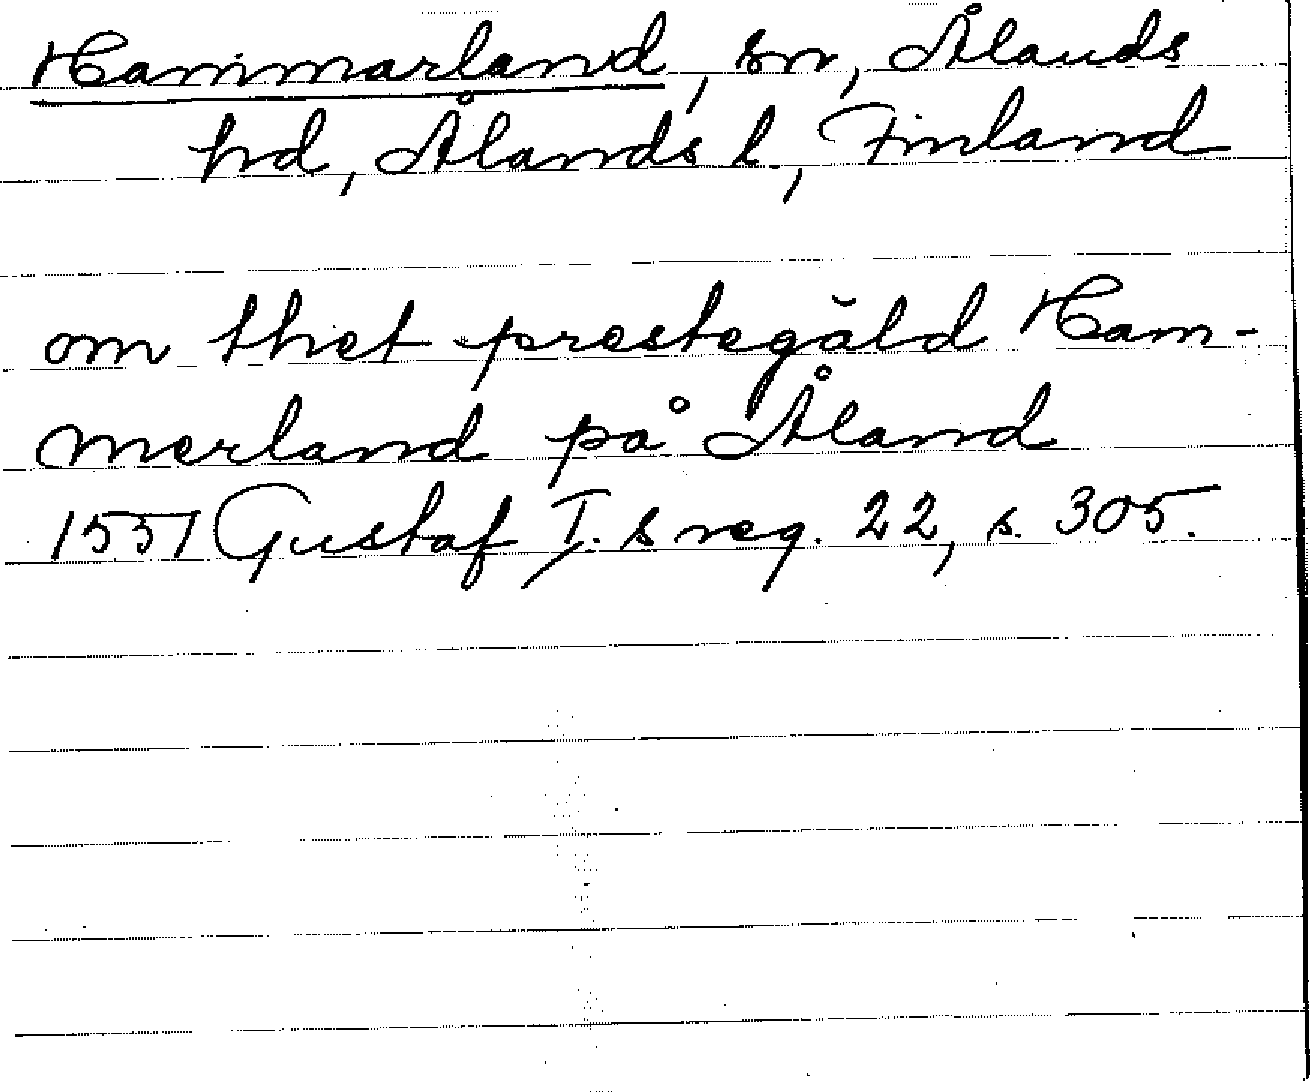 Hammarland, sn, Ålands
hd, Ålands l., Finland
om thet prestegäld Ham-
merland på Åland
1551 Gustaf I.s reg. 22, s. 305.